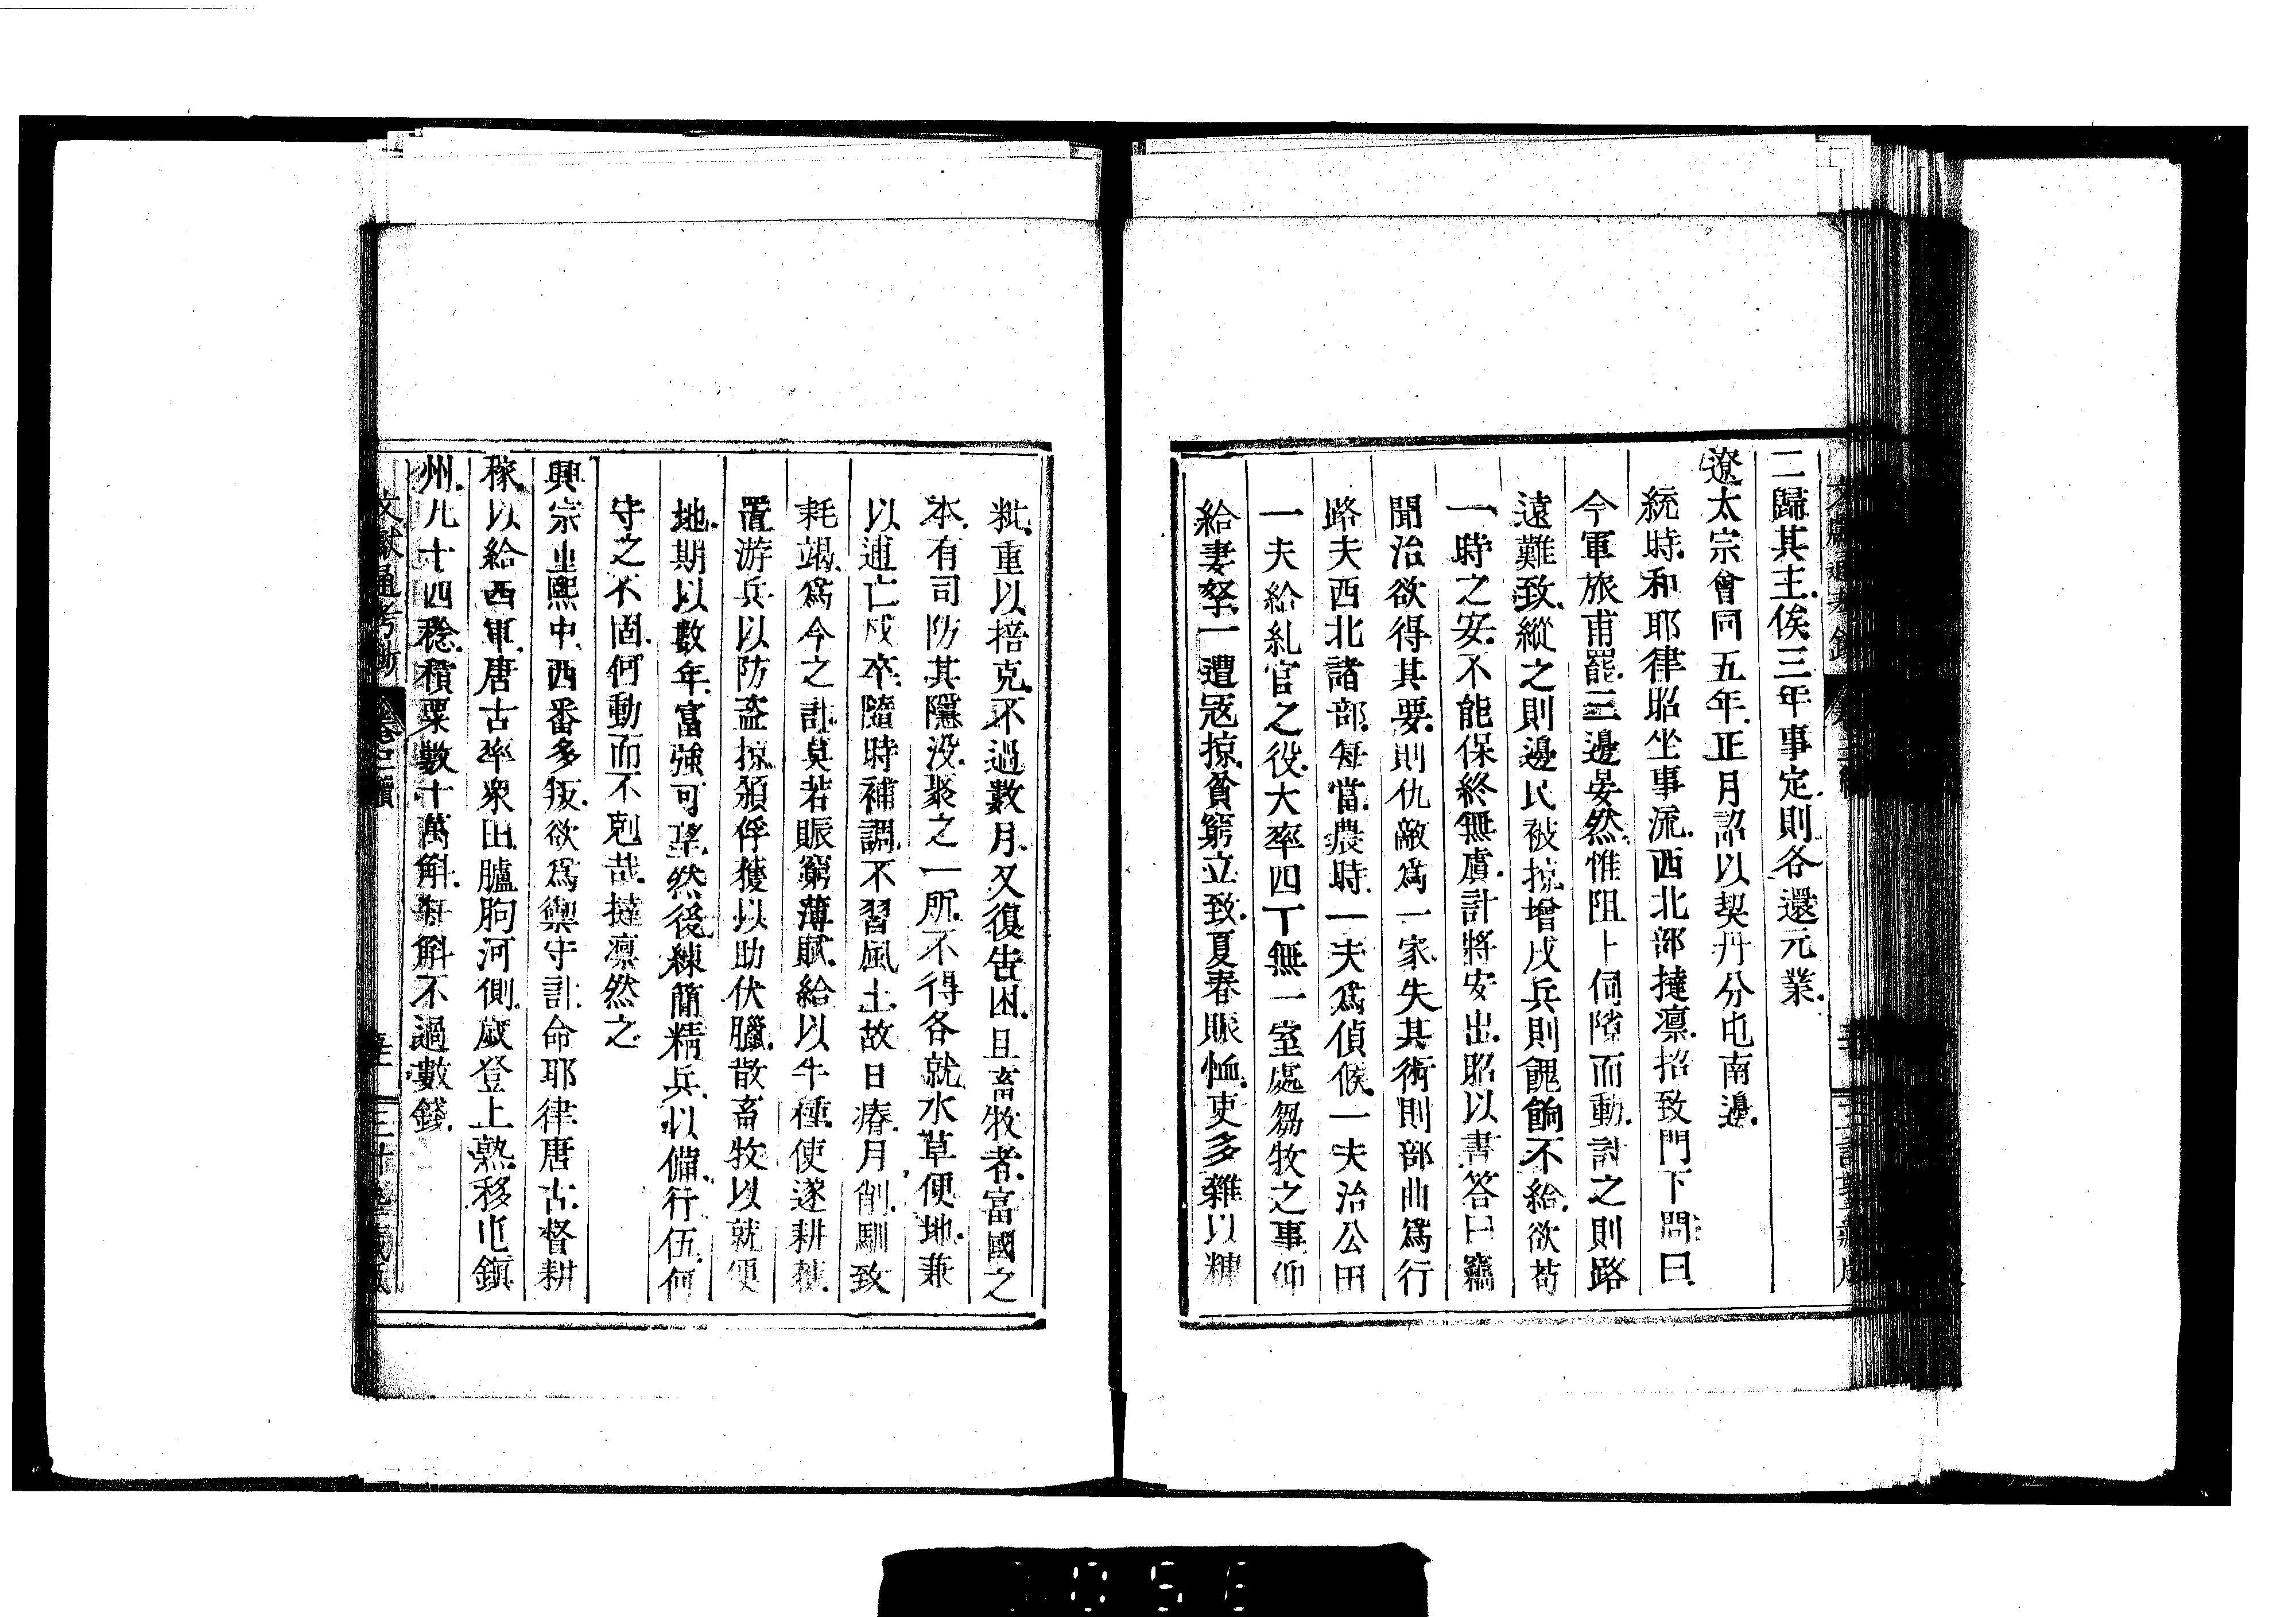 二歸其主俟三年事定則各還元業
遼太宗會同五年正月詔以契丹分屯南邊
統時和耶律昭坐事流西北部撻凛招致門下問曰
今軍旅甫罷三邊晏然惟阻卜伺隙而動討之則路
遠難致縱之則邊民被掠增戍兵則餽餉不給欲苟
一時之安不能保終無虞計將安出昭以書答曰竊
聞治欲得其要則仇敵爲一家失其術則部曲爲行
路夫西北諸部每當農時一夫爲偵候一夫治公田
一夫給糺官之役大率四丁無一室處芻牧之事仰
給妻孥一遭寇掠貧窮立致夏春賑恤吏多雜以糠
粃重以掊克不過數月又復告困且畜牧者富國之
本有司防其隱没聚之一所不得各就水草便地兼
以逋亡戍卒隨時補調不習風土故日瘠月削馴致
耗竭爲今之計莫若賑窮薄賦給以牛種使遂耕穫
置游兵以防盗掠頒俘獲以助伏臘散畜牧以就便
地期以數年富強可望然後練簡精兵以備行伍何
守之不固何動而不剋哉撻凛然之
興宗重熙中西番多叛欲爲禦守計命耶律唐古督耕
稼以給西軍唐古率衆田臚朐河側歲登上熟移屯鎮
州凡十四稔積粟數十萬斛每斛不過數錢
文獻通考